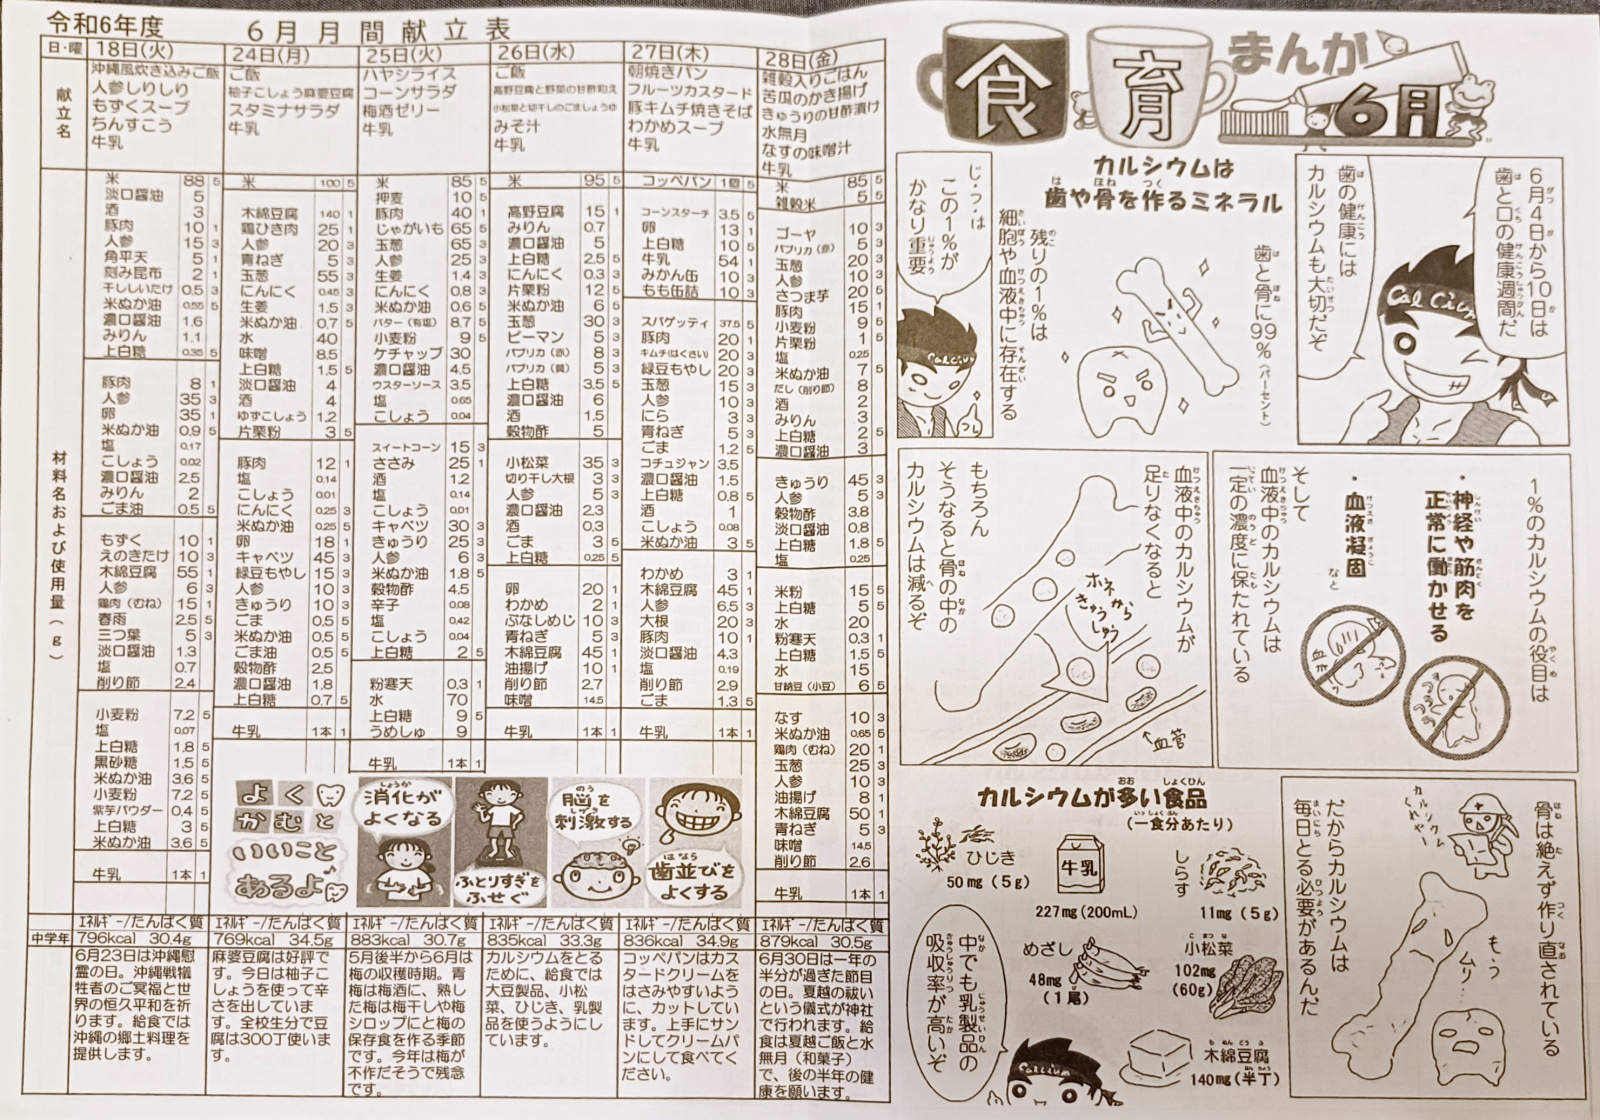 令和6年度 6月月間献立表
日・曜 18日(火) 24日(月) 25日(火) 26日(水) 27日(木) 28日(金)
献立名
沖縄風炊き込みご飯
人参しりしり
もずくスープ
ちんすこう
牛乳
ご飯
柚子こしょう麻婆豆腐
スタミナサラダ
牛乳
ハヤシライス
コーンサラダ
梅酒ゼリー
牛乳
ご飯
高野豆腐と野菜の甘酢和え
小松菜と切干しのごましょうゆ
みそ汁
牛乳
朝焼きパン
フルーツカスタード
豚キムチ焼きそば
わかめスープ
牛乳
雑穀入りごはん
苦瓜のかき揚げ
きゅうりの甘酢漬け
水無月
なすの味噌汁
牛乳
材料名および使用量(g)
米 88 5
淡口醤油 5
酒 3
豚肉 10 1
人参 15 3
角平天 5 1
刻み昆布 2 1
干ししいたけ 0.5 3
米ぬか油 0.55 5
濃口醤油 1.6
みりん 1.1
上白糖 0.35 5
豚肉 8 1
人参 35 3
卵 35 1
米ぬか油 0.9 5
塩 0.17
こしょう 0.02
濃口醤油 2.5
みりん 2
ごま油 0.5 5
もずく 10 1
えのきたけ 10 3
木綿豆腐 55 1
人参 6 3
鶏肉(むね) 15 1
春雨 2.5 5
三つ葉 5 3
淡口醤油 1.3
塩 0.7
削り節 2.4
小麦粉 7.2 5
塩 0.07
上白糖 1.8 5
黒砂糖 1.5 5
米ぬか油 3.6 5
小麦粉 7.2 5
紫芋パウダー 0.4 5
上白糖 3 5
米ぬか油 3.6 5
牛乳 1本 1
米 100 5
木綿豆腐 140 1
鶏ひき肉 25 1
人参 20 3
青ねぎ 5 3
玉葱 55 3
にんにく 0.45 3
生姜 1.5 3
米ぬか油 0.7 5
水 40
味噌 8.5
上白糖 1.5 5
淡口醤油 4
酒 4
ゆずこしょう 1.2
片栗粉 3 5
豚肉 12 1
塩 0.14
こしょう 0.01
にんにく 0.25 3
米ぬか油 0.25 5
卵 18 1
キャベツ 45 3
緑豆もやし 15 3
人参 10 3
きゅうり 10 3
ごま 0.5 5
米ぬか油 0.5 5
ごま油 0.5 5
穀物酢 2.5
濃口醤油 1.8
上白糖 0.7 5
牛乳 1本 1
米 85 5
押麦 10 5
豚肉 40 1
じゃがいも 65 5
玉葱 65 3
人参 25 3
生姜 1.4 3
にんにく 0.8 3
米ぬか油 0.6 5
バター(有塩) 8.7 5
小麦粉 9 5
ケチャップ 30
濃口醤油 4.5
ウスターソース 3.5
塩 0.65
こしょう 0.04
スイートコーン 15 3
ささみ 25 1
酒 1.2
塩 0.14
こしょう 0.01
キャベツ 30 3
きゅうり 25 3
人参 6 3
米ぬか油 1.8 5
穀物酢 4.5
辛子 0.08
塩 0.42
こしょう 0.04
上白糖 2 5
粉寒天 0.3 1
水 70
上白糖 9 5
うめしゅ 9
牛乳 1本 1
米 95 5
高野豆腐 15 1
みりん 0.7
濃口醤油 5
上白糖 2.5 5
にんにく 0.3 3
片栗粉 12 5
米ぬか油 6 5
玉葱 30 3
ピーマン 5 3
パプリカ(赤) 8 3
パプリカ(黄) 5 3
上白糖 3.5 5
濃口醤油 6
酒 1.5
穀物酢 5
小松菜 35 3
切り干し大根 3 3
人参 5 3
濃口醤油 2.3
酒 0.3
ごま 3 5
上白糖 0.25 5
卵 20 1
わかめ 2 1
ぶなしめじ 10 3
青ねぎ 5 3
木綿豆腐 45 1
油揚げ 10 1
削り節 2.7
味噌 14.5
牛乳 1本 1
コッペパン 1個 5
コーンスターチ 3.5 5
卵 13 1
上白糖 10 5
牛乳 54 1
みかん缶 10 3
もも缶詰 10 3
スパゲッティ 37.5 5
豚肉 20 1
キムチ(はくさい) 20 3
緑豆もやし 20 3
玉葱 15 3
人参 10 3
にら 3 3
青ねぎ 5 3
ごま 1.2 5
コチュジャン 3.5
濃口醤油 1.5
上白糖 0.8 5
酒 1
こしょう 0.08
米ぬか油 3 5
わかめ 3 1
木綿豆腐 45 1
人参 6.5 3
大根 20 3
豚肉 10 1
淡口醤油 4.3
塩 0.19
削り節 2.9
ごま 1.3 5
牛乳 1本 1
米 85 5
雑穀米 5 5
ゴーヤ 10 3
パプリカ(赤) 5 3
玉葱 20 3
人参 10 3
さつま芋 20 5
豚肉 15 1
小麦粉 9 5
片栗粉 1 5
塩 0.25
米ぬか油 7 5
だし(削り節) 8
酒 2
みりん 3
上白糖 2 5
濃口醤油 3
きゅうり 45 3
人参 5 3
穀物酢 3.8
淡口醤油 0.8
上白糖 1.8 5
塩 0.25
米粉 15 5
上白糖 5 5
水 20
粉寒天 0.3 1
上白糖 1.5 5
水 15
甘納豆(小豆) 6 5
なす 10 3
米ぬか油 0.65 5
鶏肉(むね) 20 1
玉葱 25 3
人参 10 3
油揚げ 8 1
木綿豆腐 50 1
青ねぎ 5 3
味噌 14.5
削り節 2.6
牛乳 1本 1
よく
かむと
いいこと
あるよ
消化が
よくなる
ふとりすぎを
ふせぐ
脳を
刺激する
歯並びを
よくする
ｴﾈﾙｷﾞｰ/たんぱく質 ｴﾈﾙｷﾞｰ/たんぱく質 ｴﾈﾙｷﾞｰ/たんぱく質 ｴﾈﾙｷﾞｰ/たんぱく質 ｴﾈﾙｷﾞｰ/たんぱく質 ｴﾈﾙｷﾞｰ/たんぱく質
中学年 796kcal 30.4g 769kcal 34.5g 883kcal 30.7g 835kcal 33.3g 836kcal 34.9g 879kcal 30.5g
6月23日は沖縄慰
霊の日。沖縄戦犠
牲者のご冥福と世
界の恒久平和を祈
ります。給食では
沖縄の郷土料理を
提供します。
麻婆豆腐は好評で
す。今日は柚子こ
しょうを使って辛
さを出していま
す。全校生分で豆
腐は300丁使いま
す。
5月後半から6月は
梅の収穫時期。青
梅は梅酒に、熟し
た梅は梅干しや梅
シロップにと梅の
保存食を作る季節
です。今年は梅が
不作だそうで残念
です。
カルシウムをとる
ために、給食では
大豆製品、小松
菜、ひじき、乳製
品を使うようにし
ています。
コッペパンはカス
タードクリームを
はさみやすいよう
に、カットしてい
ます。上手にサン
ドしてクリームパ
ンにして食べてく
ださい。
6月30日は一年の
半分が過ぎた節目
の日。夏越の祓い
という儀式が神社
で行われます。給
食は夏越ご飯と水
無月(和菓子)
で、後の半年の健
康を願います。
食育まんが
6月
6月4日から10日は
歯と口の健康週間だ
歯の健康には
カルシウムも大切だぞ
Cal Cium
カルシウムは
歯や骨を作るミネラル
歯と骨に99%(パーセント)
残りの1%は
細胞や血液中に存在する
じ・つ・は
この1%が
かなり重要
Calcium
1%のカルシウムの役目は
・神経や筋肉を
正常に働かせる
・血液凝固
など
そして
血液中のカルシウムは
一定の濃度に保たれている
血液中のカルシウムが
足りなくなると
ホネから
きゅう
しゅう
もちろん
そうなると骨の中の
カルシウムは減るぞ
↑血管
骨は絶えず作り直されている
カルシウム
くれやー
もう
ムリ…
だからカルシウムは
毎日とる必要があるんだ
カルシウムが多い食品
(一食分あたり)
ひじき
50mg(5g)
牛乳
227mg(200mL)
しらす
11mg(5g)
めざし
48mg
(1尾)
小松菜
102mg
(60g)
木綿豆腐
140mg(半丁)
中でも乳製品の
吸収率が高いぞ
Calcium